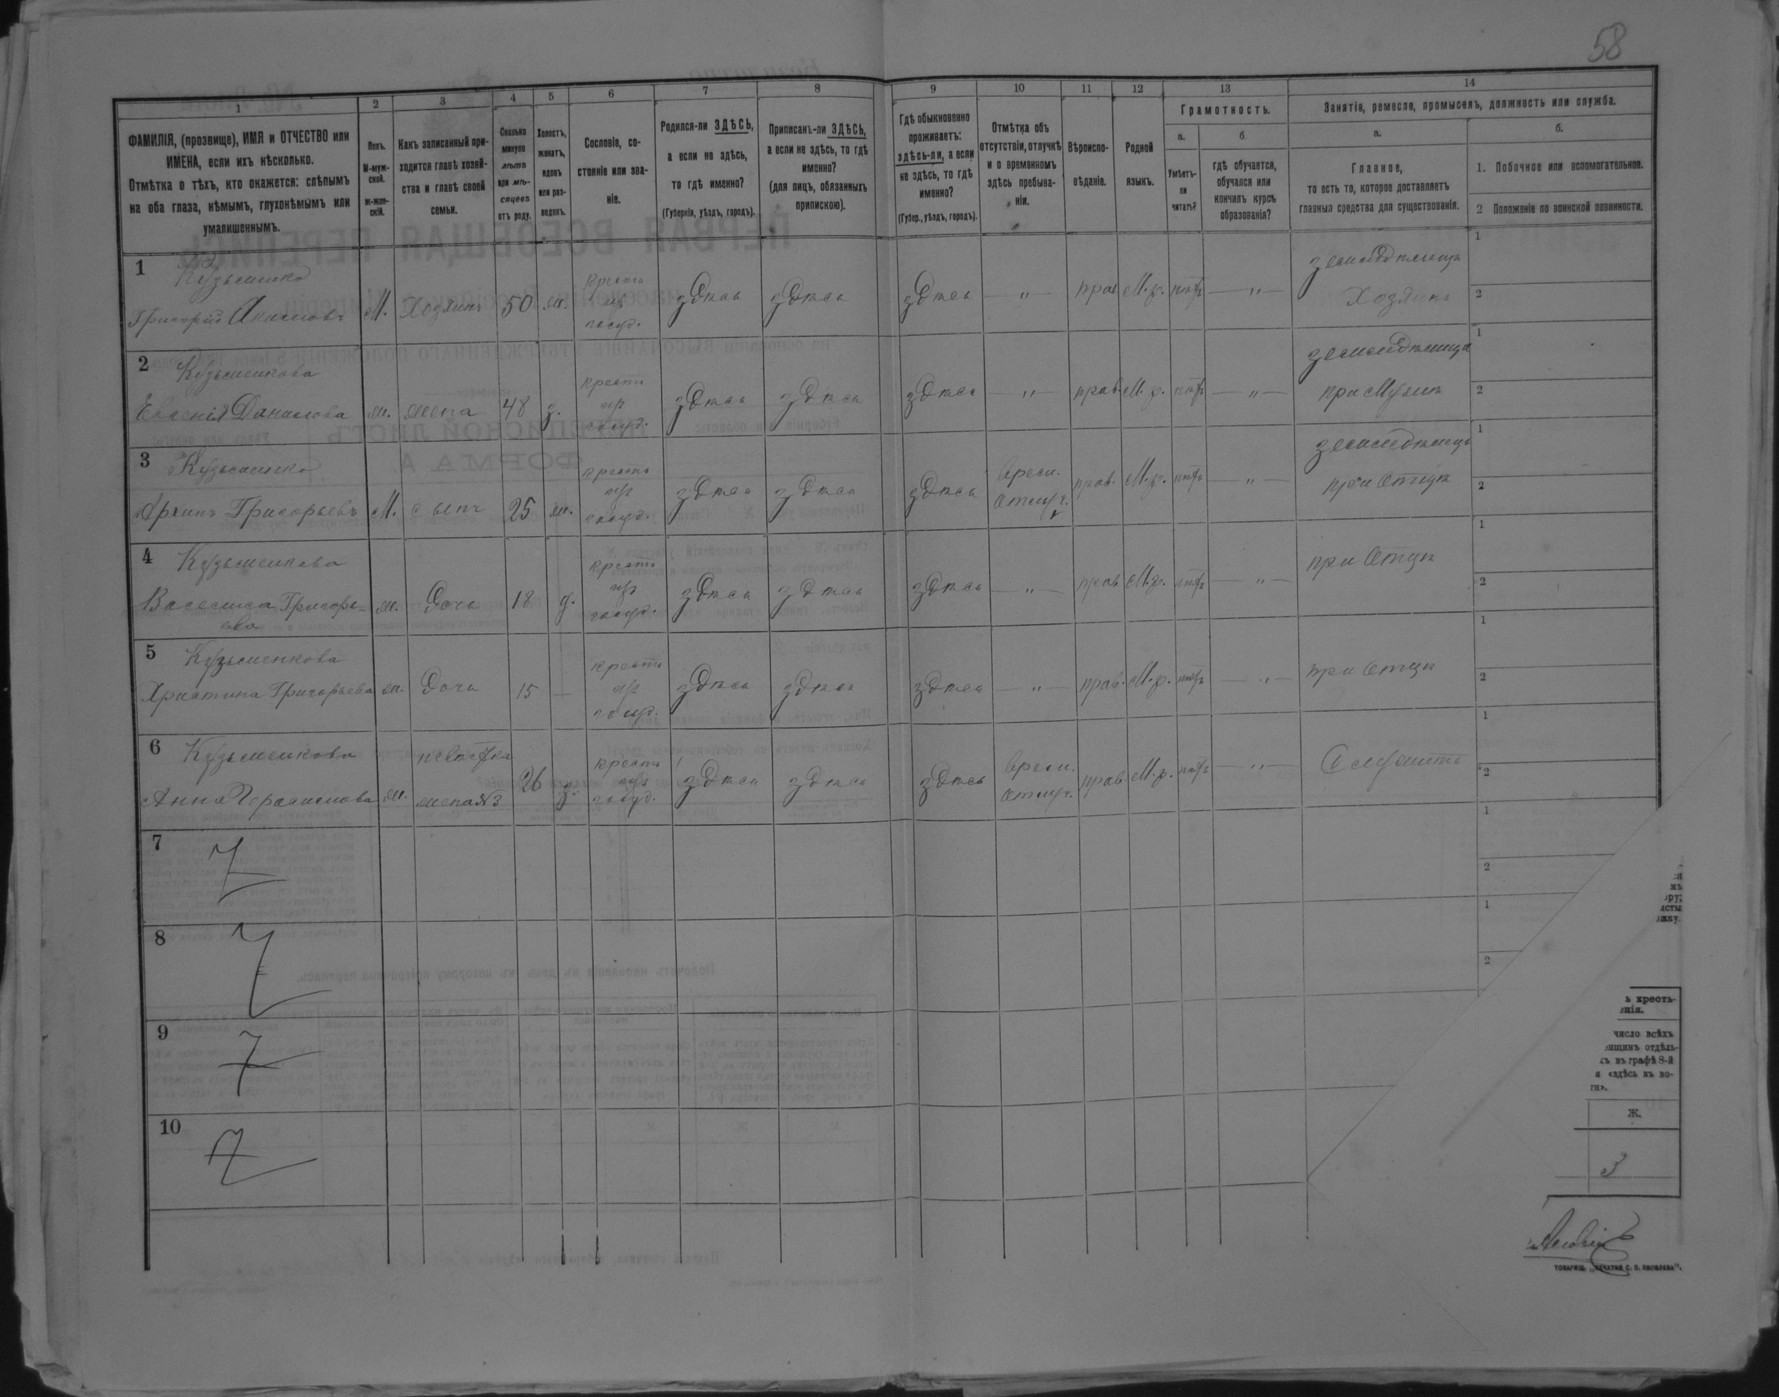 58
1
2
3
4
5
6
7
8
9
10
11
12
13
14
ФАМИЛІЯ, (прозвище), ИМЯ и ОТЧЕСТВО или
ИМЕНА, если ихъ нѣсколько.
Отмѣтка о тѣхъ, кто окажется: слѣпымъ
на оба глаза, нѣмымъ, глухонѣмымъ или
умалишеннымъ.
Полъ.
М-муж-
ской.
ж-жен-
скій.
Какъ записанный при-
ходится главѣ хозяй-
ства и главѣ своей
семьи.
Сколько
минуло
лѣтъ
или мѣ-
сяцевъ
отъ роду.
Холостъ,
женатъ,
вдовъ
или раз-
веденъ.
Сословіе, со-
стояніе или зва-
ніе.
Родился-ли ЗДѢСЬ,
а если не здѣсь,
то гдѣ именно?
(Губернія, уѣздъ, городъ).
Приписанъ-ли ЗДѢСЬ,
а если не здѣсь, то гдѣ
именно?
(для лицъ, обязанныхъ
припискою).
Гдѣ обыкновенно
проживаетъ:
здѣсь-ли, а если
не здѣсь, то гдѣ
именно?
(Губер., уѣздъ, городъ).
Отмѣтка объ
отсутствіи, отлучкѣ
и о временномъ
здѣсь пребыва-
ніи.
Вѣроиспо-
вѣданіе.
Родной
языкъ.
Грамотность.
а.
б.
Умѣетъ-
ли
читать?
гдѣ обучается,
обучался или
кончилъ курсъ
образованія?
Занятія, ремесло, промыселъ, должность или служба.
а.
б.
Главное,
то есть то, которое доставляетъ
главныя средства для существованія.
1. Побочное или вспомогательное.
2 Положеніе по воинской повинности.
1
Кузьменко
Григорій
М. Хозяинъ 50 ж.
крестн
изъ
госуд.
здѣсь здѣсь здѣсь — „ — прав М.р. нѣтъ — „ —
земледѣлецъ
Хозяинъ
1
2
2
Кузьменкова
Евгенія Данилова ж. жена 48 з.
крестн
изъ
госуд.
здѣсь здѣсь здѣсь — „ — прав. М.р. нѣтъ — „ —
при Мужѣ
1
2
3
Кузьменко
Архипъ Григорьевъ М. сынъ 25 ж.
крестн
изъ
госуд.
здѣсь здѣсь здѣсь
врем.
отлуч.
прав. М.р. нѣтъ — „ —
при Отцѣ
1
2
4
Кузьменкова
Василиса Григорь=
ева
ж. Дочь 18 д.
крестн
изъ
госуд.
здѣсь здѣсь здѣсь — „ — прав М.р. нѣтъ — „ —
при Отцѣ
1
2
5
Кузьменкова
Христина Григорьева ж. Дочь 15 —
крестн
изъ
госуд.
здѣсь здѣсь здѣсь — „ — прав. М.р. нѣтъ — „ —
при Отцѣ
1
2
6
Кузьменкова
Анна Герасимова ж.
невѣстка
жена №3
26 з.
крестн
изъ
госуд.
здѣсь здѣсь здѣсь
врем.
отлуч.
прав. М.р. нѣтъ — „ —
Служитъ
1
2
7
1
2
8
1
2
9
10
ь кресть-
число всѣхъ
отдѣль-
въ графѣ 8-й
Ж.
3